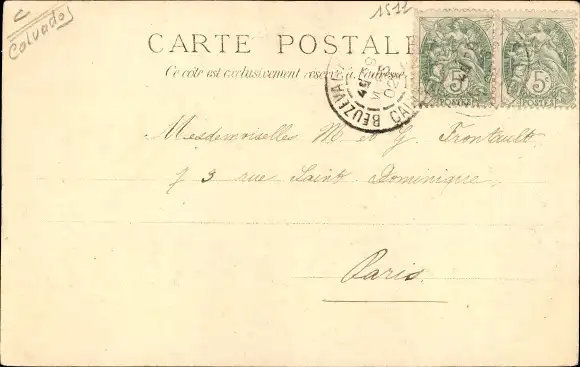 C
Calvados
1511
CARTE POSTALE
Ce côté est exclusivement réservé à l'adresse
BEUZEVAL
02
5c 5c
POSTES POSTES
Mesdemoiselles M et G Frontault
73 rue Saint Dominique
Paris